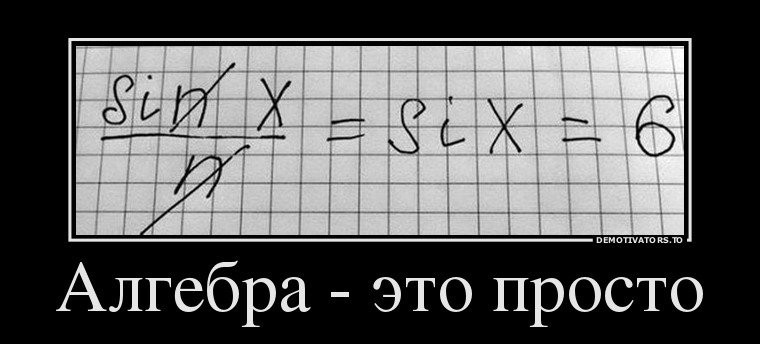 sin x
n
= six = 6
DEMOTIVATORS.TO
Алгебра - это просто